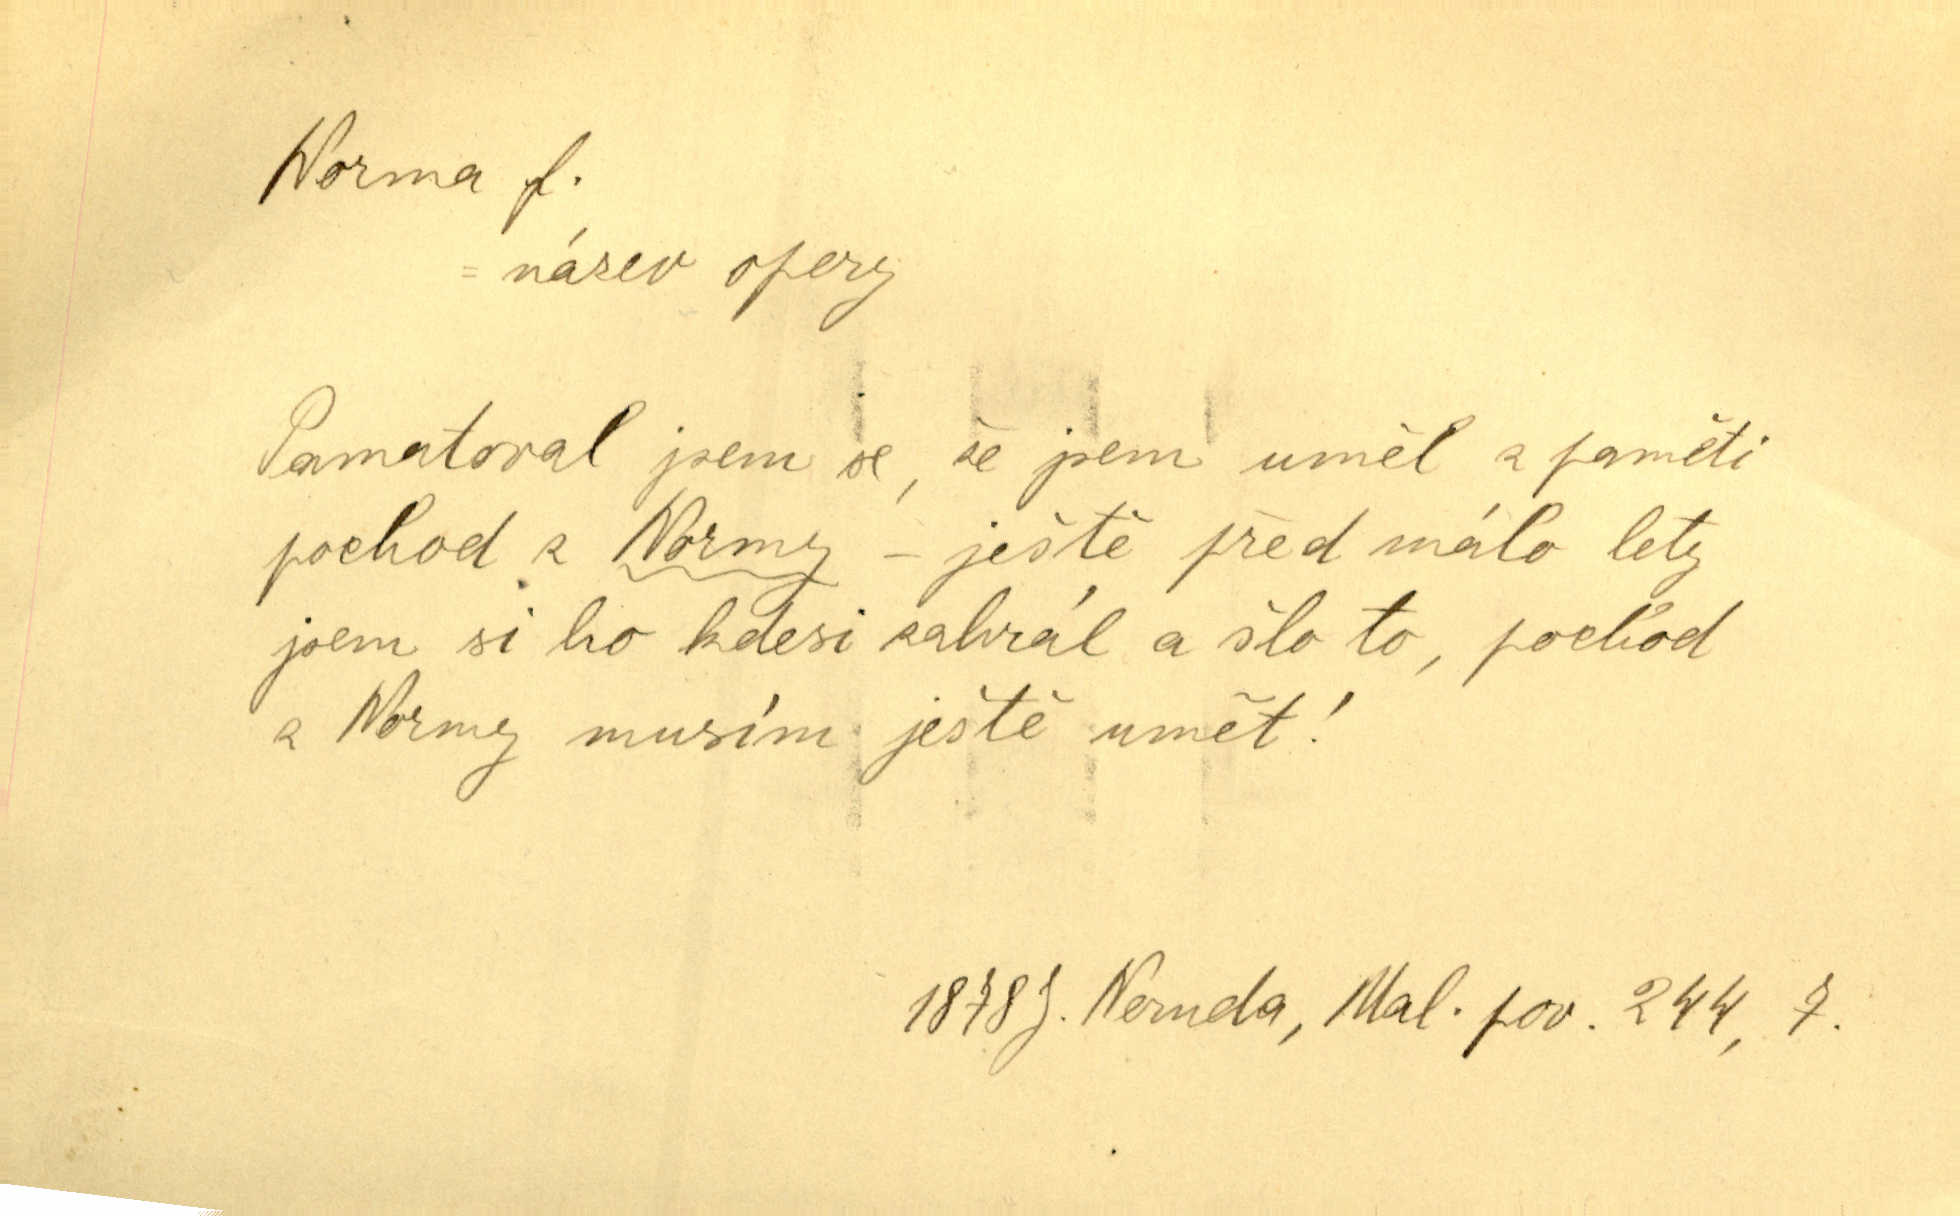 Norma f.
= název opery
Pamatoval jsem se, že jsem uměl z paměti
pochod z Normy – ještě před málo lety
jsem si ho kdesi zahrál a šlo to, pochod
z Normy musím ještě umět!
1878 J. Neruda, Mal. pov. 244, 7.